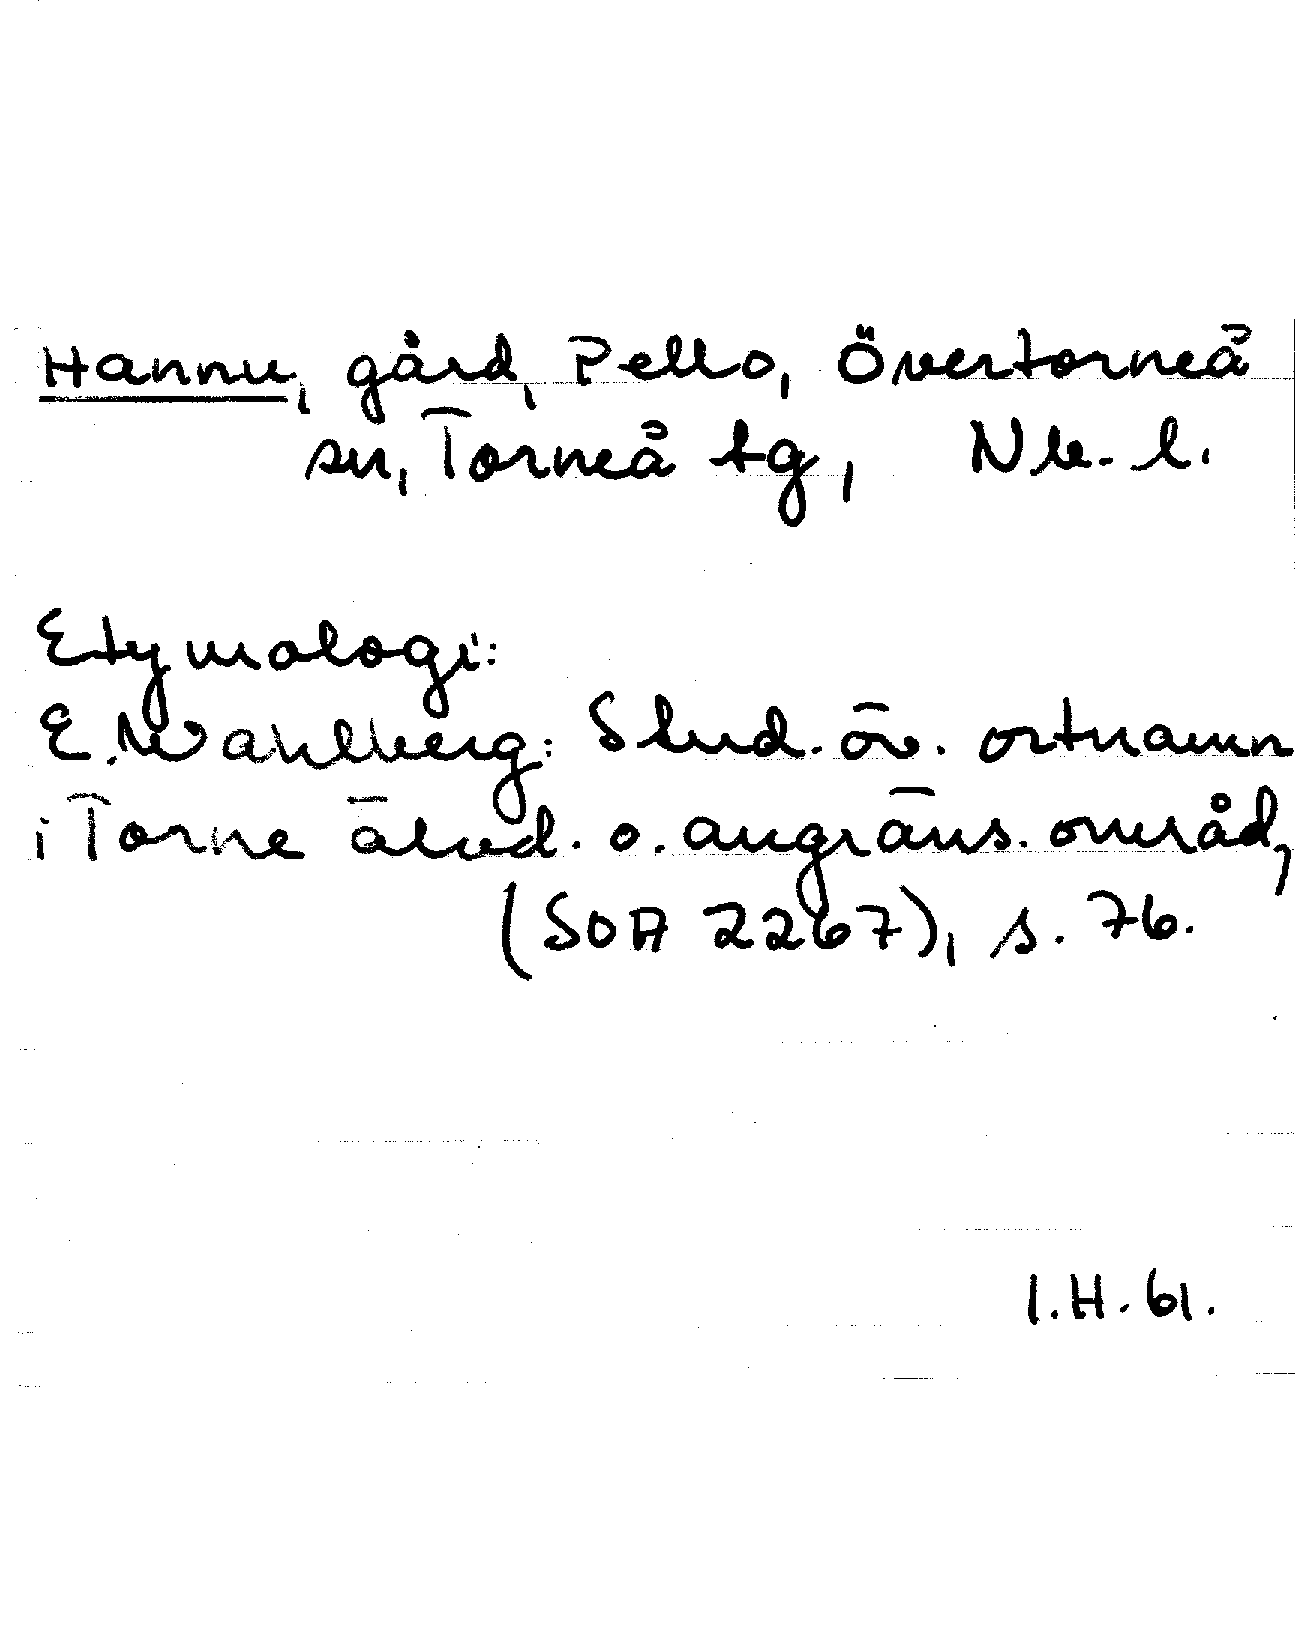 Hannu, gård, Pello, Övertorneå
sn, Torneå tg, Nb. l.
Etymologi:
E. Wahlberg: Stud. öv. ortnamn
i Torne älvd. o. angräns. områd,
(SOA 2267), s. 76.
I.H. 61.